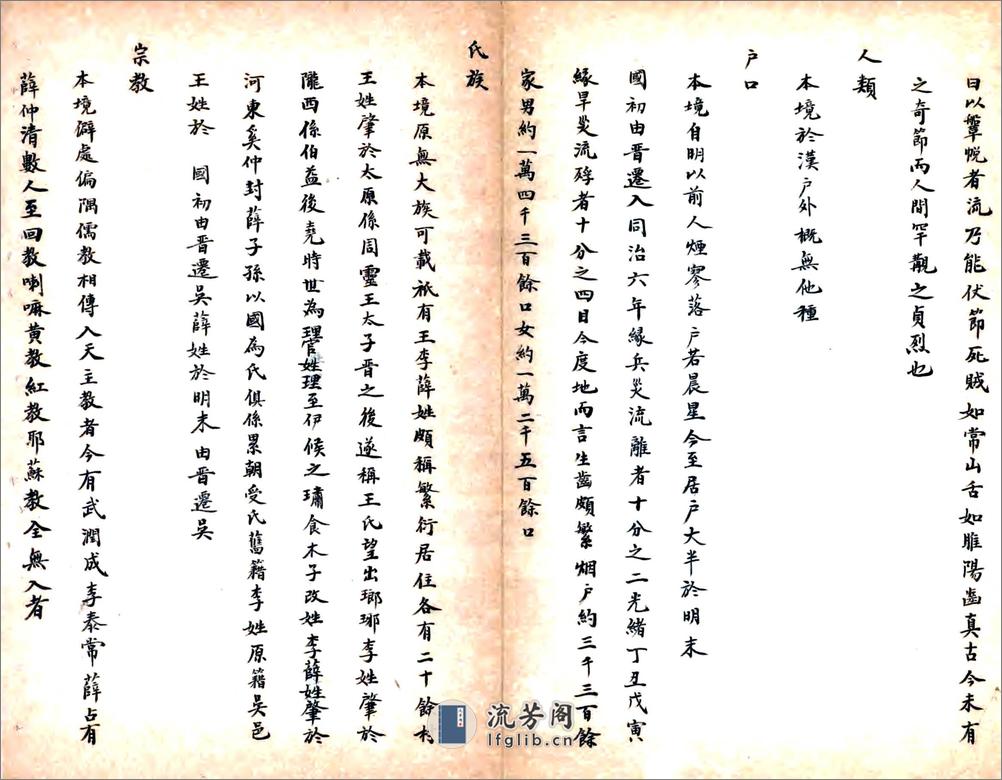 曰以鞶帨者流乃能伏節死賊如常山舌如睢陽齒真古今未有
之奇節而人間罕覯之貞烈也
人類
本境於漢戶外概無他種
戶口
本境自明以前人煙寥落戶若晨星今至居戶大半於明末
國初由晋遷入同治六年緣兵災流離者十分之二光緒丁丑戊寅
緣旱災流殍者十分之四目今度地而言生齒頗繁烟戶約三千三百餘
家男約一萬四千三百餘口女約一萬二千五百餘口
氏族
本境原無大族可載祇有王李薛姓頗稱繁衍居住各有二十餘村
王姓肇於太原係周靈王太子晋之後遂稱王氏望出瑯琊李姓肇於
隴西係伯益後堯時世為理官姓理至伊候之墉食木子改姓李薛姓肇於
河東奚仲封薛子孫以國為氏俱係累朝受氏舊籍李姓原籍吳邑
王姓於 國初由晋遷吳薛姓於明末由晋遷吳
宗教
本境僻處偏隅儒教相傳入天主教者今有武潤成李泰常薛占有
薛仲清數人至回教喇嘛黃教紅教耶蘇教全無入者
流芳阁
lfglib.cn